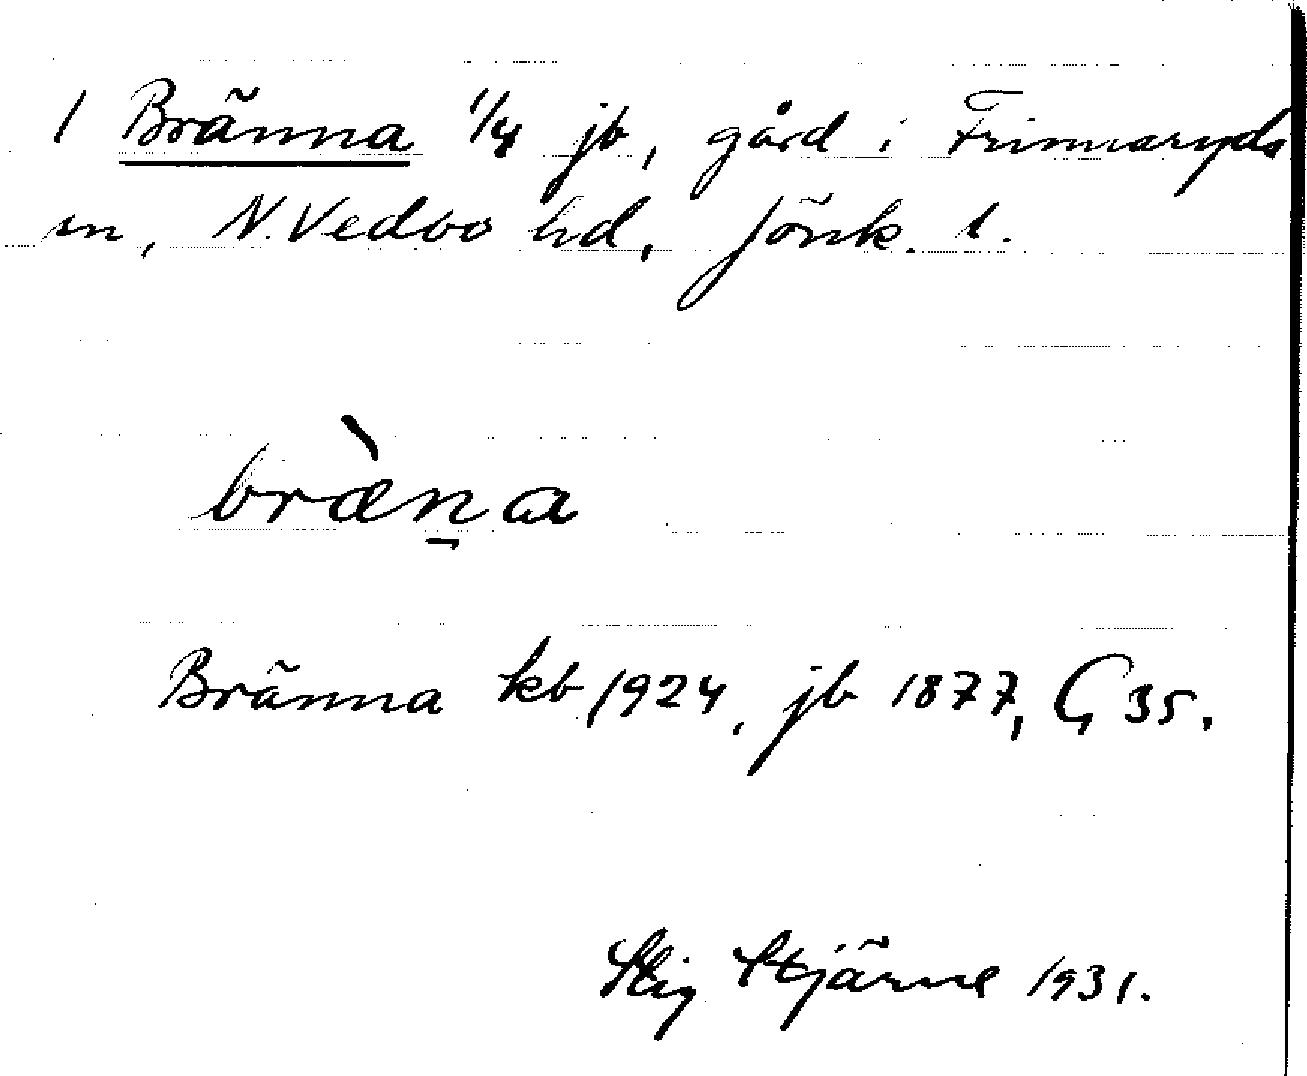 1 Bränna 1/4 jb, gård i Frinnaryds
sn, N. Vedbo hd, Jönk. l.
bræ̀n̠a
Bränna kb 1924, jb 1877, G 35.
Stig Stjärne 1931.